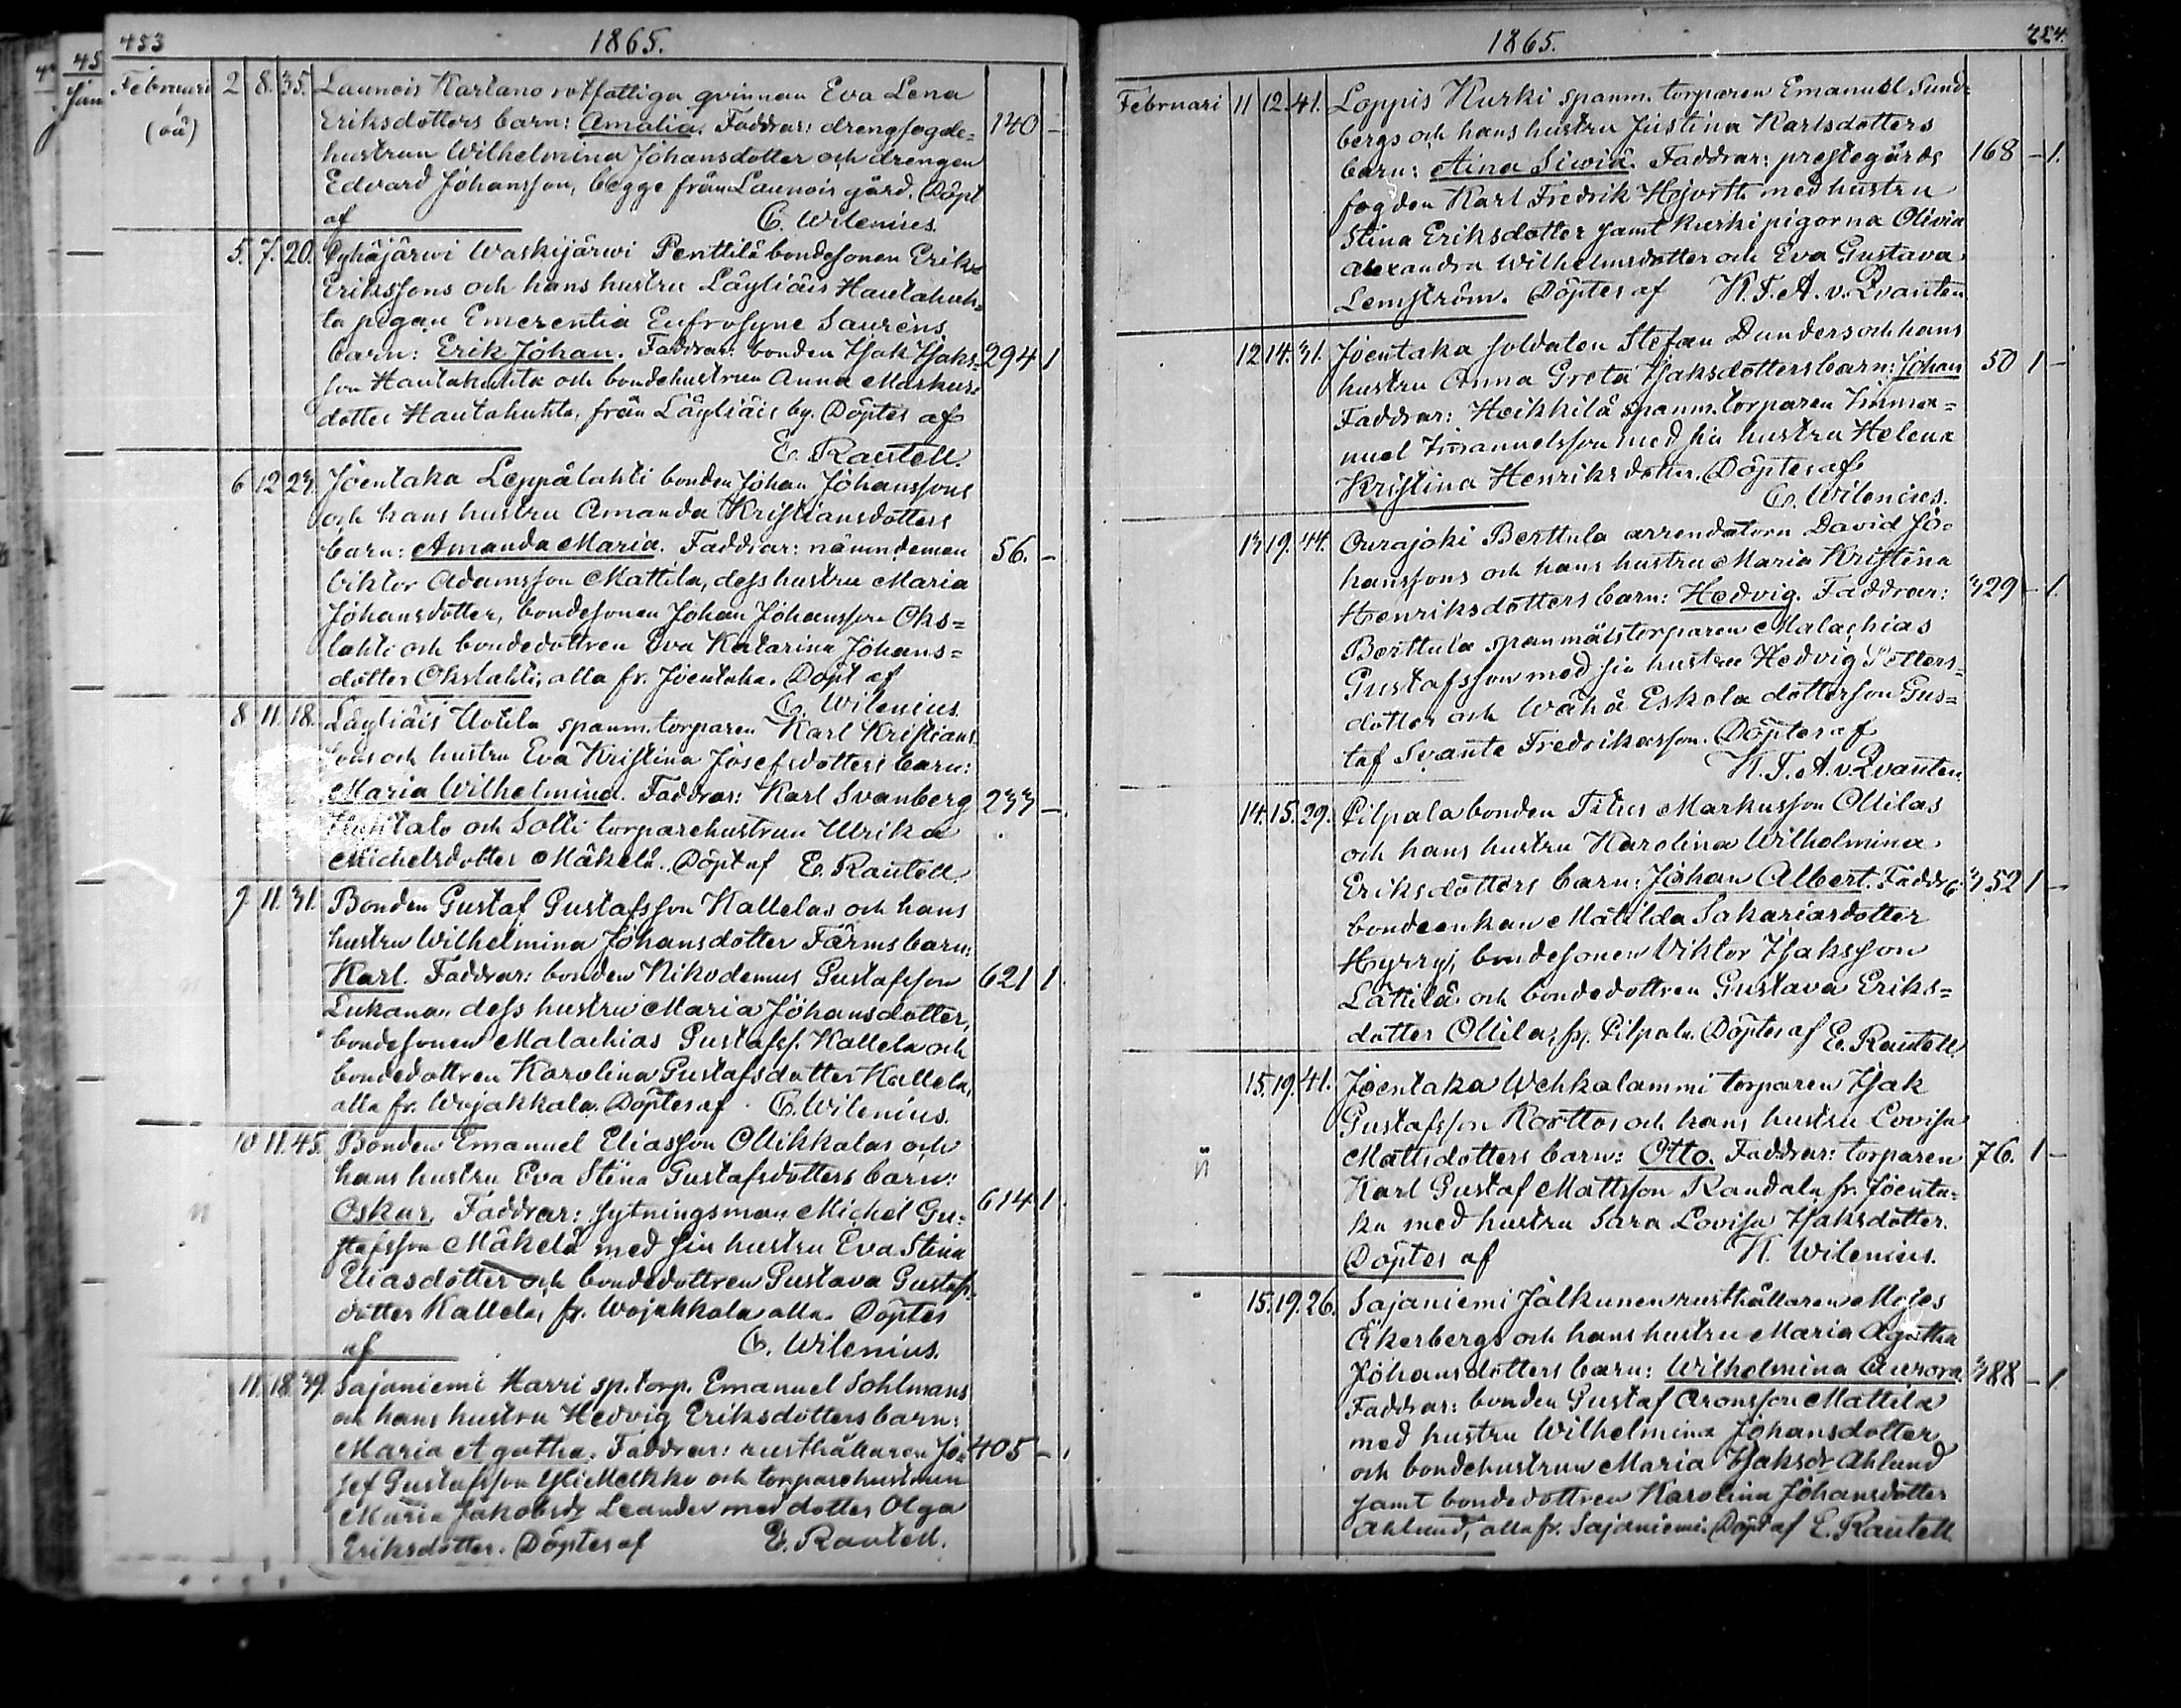 453
1865.
Februari 2 8. 35. Launois Kartano rotfattiga qvinnan Eva Lena
(oä) Eriksdotters barn: Amalia. Faddrar: drengfogde- 140 –
hustrun Wilhelmina Johansdotter och drengen
Edvard Johansson, begge från Launois gård. Döpt
af C. Wilenius.
5. 7. 20. Pyhäjärwi Waskijärwi Penttilä bondesonen Erik
Erikssons och hans hustru Läyliäis Hautahuh-
ta pigan Emerentia Eufrosyne Sauréns
barn: Erik Johan. Faddrar: bonden Isak Isaks- 294 1
son Hautahuhta och bondehustrun Anna Markus-
dotter Hautahuhta, från Läyliäis by. Döptes af
E. Rautell.
6 12 23. Joentaka Leppälahti bonden Johan Johanssons
och hans hustru Amanda Kristiansdotters
barn: Amanda Maria. Faddrar: nämndeman 56. –
Viktor Adamsson Mattila, dess hustru Maria
Johansdotter, bondesonen Johan Johansson Oks=
lahti och bondedottren Eva Katarina Johans=
dotter Okslahti, alla fr. Joentaka. Döpt af
C. Wilenius.
8 11. 18. Läyliäis Uotila spanm. torparen Karl Kristians-
sons och hustru Eva Kristina Josefsdotters barn:
Maria Wilhelmina. Faddrar: Karl Svanberg 233 –
och Solli torparehustrun Ulrika
Michelsdotter Mäkelä. Döpt af E. Rautell.
9 11. 31. Bonden Gustaf Gustafsson Kallelas och hans
hustru Wilhelmina Johansdotter Färms barn:
Karl. Faddrar: bonden Nikodemus Gustafsson 621 1.
Lukana, dess hustru Maria Johansdotter,
bondesonen Malachias Gustafss. Kallela och
bondedottren Karolina Gustafsdotter Kallela,
alla fr. Wojakkala. Döptes af C. Wilenius.
10 11. 45. Bonden Emanuel Eliasson Ollikkalas och
hans hustru Eva Stina Gustafsdotters barn:
Oskar. Faddrar: sytningsman Michel Gu- 614 1.
stafsson Mäkelä med sin hustru Eva Stina
Eliasdotter och bondedottren Gustava Gustafs-
dotter Kallela, fr. Wojakkala alla. Döptes
af C. Wilenius.
11. 18. 39. Sajaniemi Harri sp. torp. Emanuel Sohlmans
och hans hustru Hedvig Eriksdotters barn:
Maria Agatha. Faddrar: rusthållaren Jo- 405 –
sef Gustafsson och torparehustrun
Maria Jakobsdr Leander med dotter Olga
Eriksdotter. Döptes af E. Rautell.
1865.
454.
Februari 11 12. 41. Loppis Kurki spanm. torparen Emanuel Sund-
bergs och hans hustru Justina Karlsdotters
barn: Aina Siwiä. Faddrar: prestegårds 168 – 1.
fogden Karl Fredrik Hjorth med hustru
Stina Eriksdotter samt Kurki pigorna Olivia
Alexandra Wilhelmsdotter och Eva Gustava
Lemström. Döptes af K. F. A. v. Qvanten
12 14. 31. Joentaka soldaten Stefan Dunders och hans
hustru Anna Greta Isaksdotters barn: Johan 50 1 –
Faddrar: Heikkilä spanm. torparen Imma=
nuel Immanuelsson med sin hustru Helena
Kristina Henriksdotter. Döptes af
C. Wilenius.
13 19. 44. Ourajoki Berttula arrendatorn David Jo-
hanssons och hans hustru Maria Kristina
Henriksdotters barn: Hedvig. Faddrar: 329 – 1.
Berttula spanmålstorparen Malachias
Gustafsson med sin hustru Hedvig Petters-
dotter och Wähä Eskola dotterson Gus=
taf Svante Fredriksson. Döptes af
K. F. A. v. Qvanten
14. 15. 29. Pilpala bonden Titus Markusson Ollilas
och hans hustru Karolina Wilhelmina
Eriksdotters barn: Johan Albert. Faddr: 352 1 –
bondeenkan Matilda Sakariasdotter
Hyrry, bondesonen Viktor Isaksson
Lättilä och bondedottren Gustava Eriks=
dotter Ollila, fr. Pilpala. Döptes af E. Rautell
15. 19. 41. Joentaka Wehkalammi torparen Isak
Gustafsson Korttos och hans hustru Lovisa
Mattsdotters barn: Otto. Faddrar: torparen 76. 1 –
Karl Gustaf Mattsson Randala fr. Joenta-
ka med hustru Sara Lovisa Isaksdotter.
Döptes af K. Wilenius.
15. 19. 26. Sajaniemi Jalkunen rusthållaren Moses
Åkerbergs och hans hustru Maria Agatha
Johansdotters barn: Wilhelmina Aurora 388 – 1.
Faddrar: bonden Gustaf Aronsson Mattila
med hustru Wilhelmina Johansdotter
och bondehustrun Maria Isaksdr Ahlund
samt bondedottren Karolina Johansdotter
Ahlund, alla fr. Sajaniemi. Döpt af E. Rautell